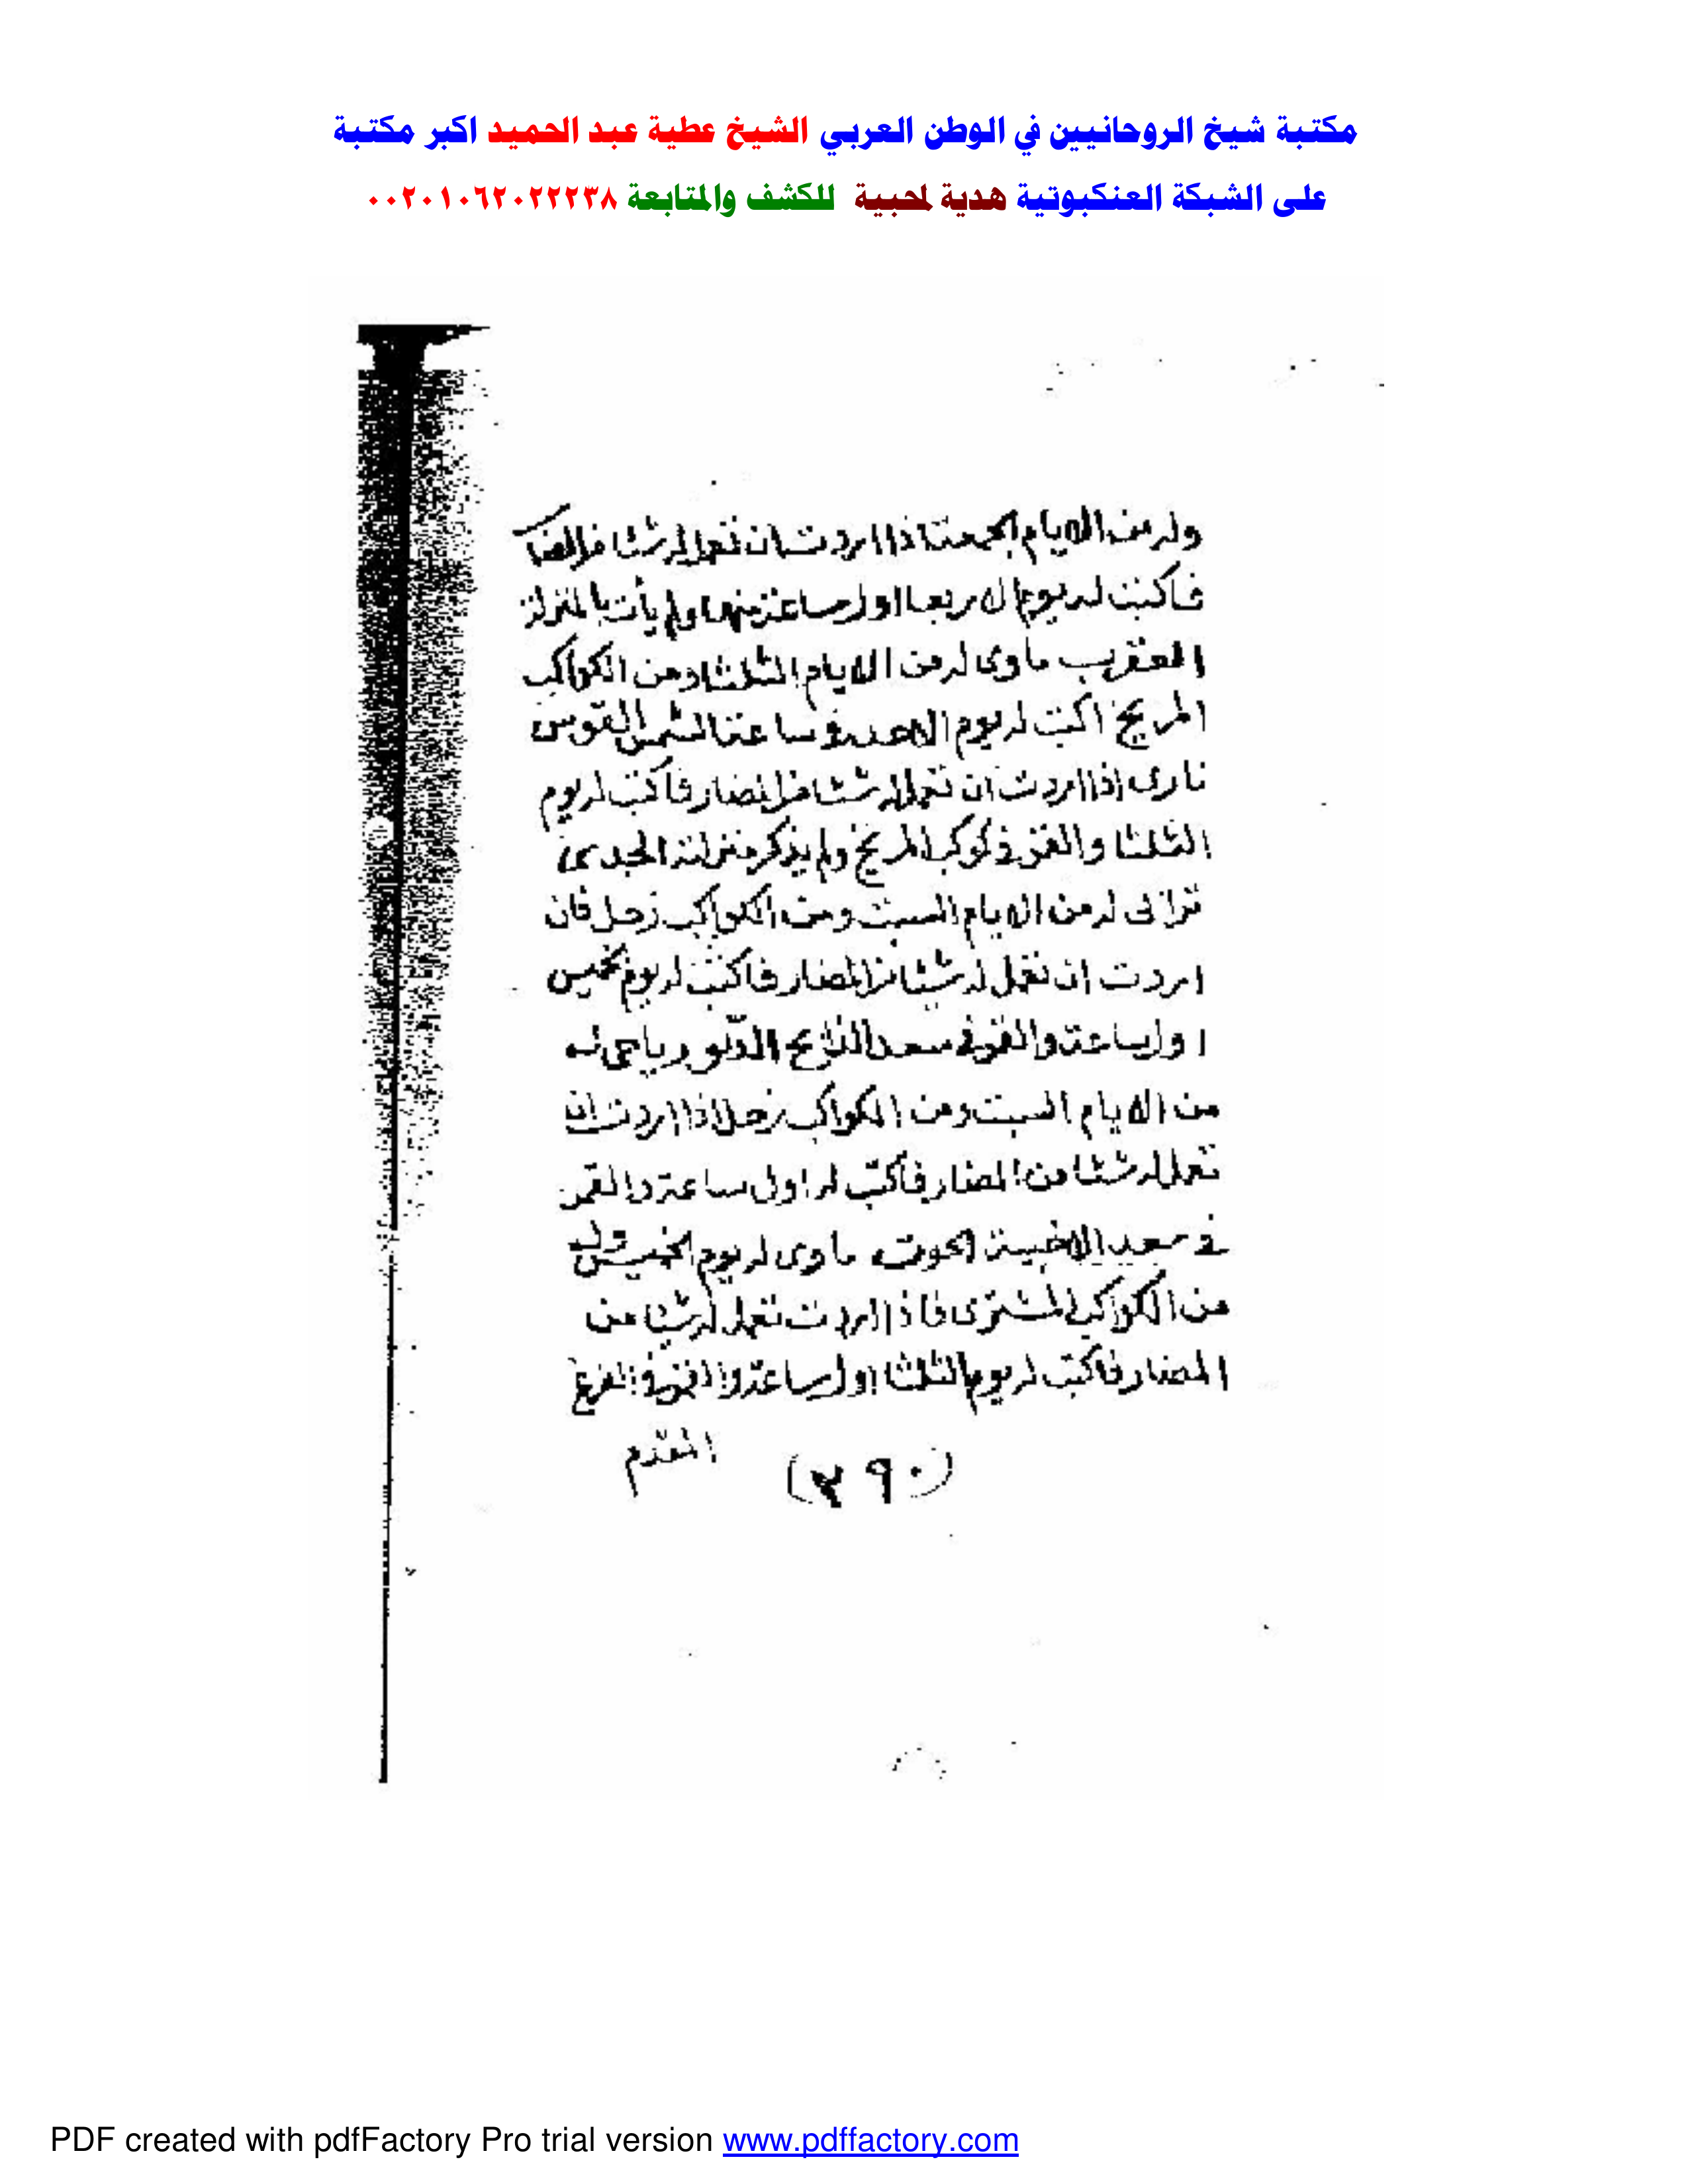 مكتبة شيخ الروحانيين في الوطن العربي الشيخ عطية عبد الحميد اكبر مكتبة
على الشبكة العنكبوتية هدية لمحبية للكشف والمتابعة ٠٠٢٠١٠٦٢٠٢٢٢٣٨
وله من الايام الجمعة اذا اردت ان تعمل له شئا من المضا
فاكتب له يوم الاربعا اول ساعة منها ولم يأت بالمنزلة
العقرب ماوى له من الايام الثلثا ومن الكواكب
المريخ اكتب له يوم الاحد فى ساعة الشمس القوس
نارى اذا اردت ان تعمل له شئا من المضار فاكتب له يوم
الثلثا والقمر فى كوكب المريخ ولم يذكر منزلته الجدى
ترابى له من الايام السبت ومن الكواكب زحل فان
اردت ان تعمل له شئا من المضار فاكتب له يوم الخميس
اول ساعة والقمر فى سعد الذابح الدلو رياحى له
من الايام السبت ومن الكواكب زحل اذا اردت ان
تعمل له شئا من المضار فاكتب له اول ساعة والقمر
فى سعد الاخبية الحوت ماوى له يوم الخميس وله
من الكواكب المشترى فاذا اردت تعمل له شئا من
المضار فاكتب له يوم الثلثا اول ساعة والقمر فى الفرع
المقدم
(٢٩٠)
PDF created with pdfFactory Pro trial version www.pdffactory.com